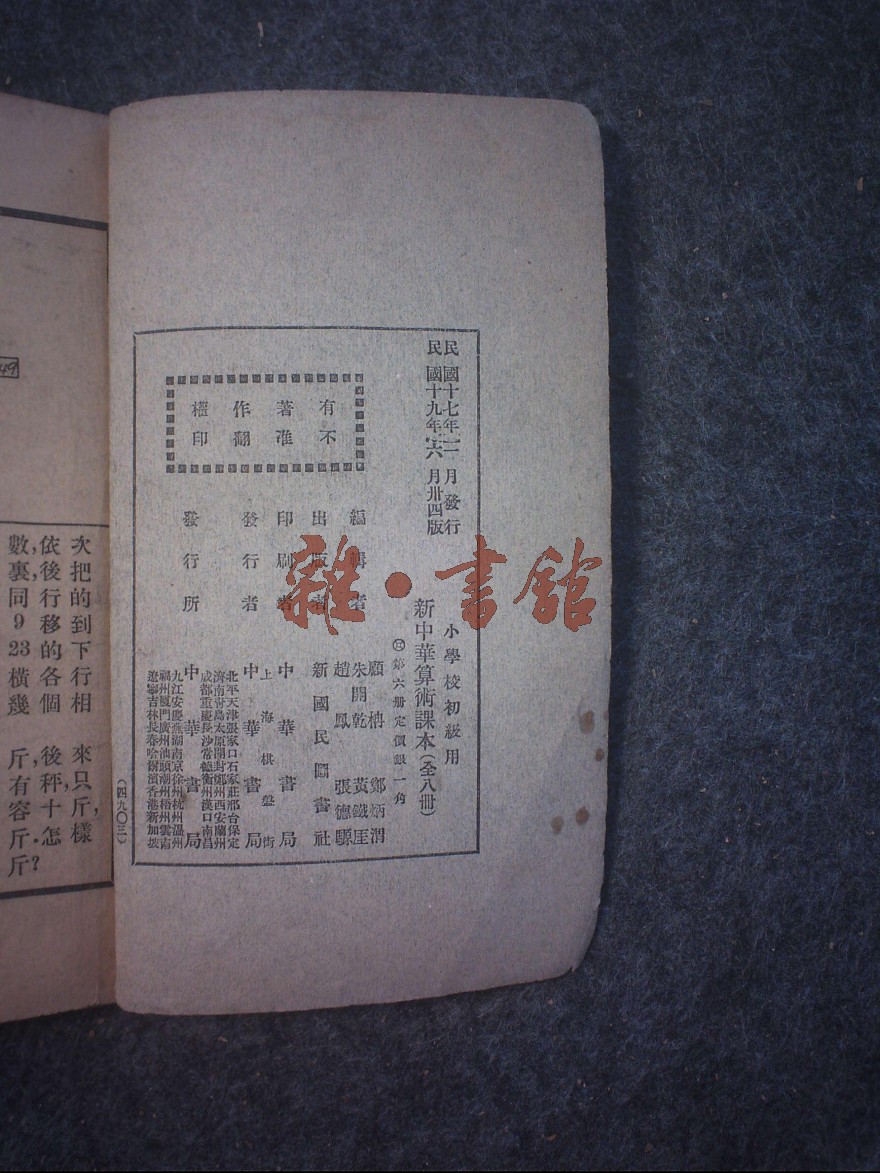 民國十七年一月發行
民國十九年六月卅四版
小學校初級用
新中華算術課本(全八冊)
第六冊定價銀一角
編輯者
顧柟 鄭炳渭
朱開乾 黃鐵崖
趙鳳 張德驥
出版者 新國民圖書社
印刷者 中華書局
上海棋盤街
發行者 中華書局
發行所 中華書局
北平天津張家口石家莊邢台保定
濟南青島太原開封鄭州西安蘭州
成都重慶長沙常德衡州漢口南昌
九江安慶蕪湖南京徐州杭州溫州
福州廈門廣州汕頭潮州梧州雲南
遼寧吉林長春哈爾濱香港新加坡
有不
著准
作翻
權印
(四九〇三)
雜·書館
49
次把的到下行相 來只斤,樣
依後行移的各個 後秤十怎
數,裏同9 23橫幾 斤有容斤.斤?